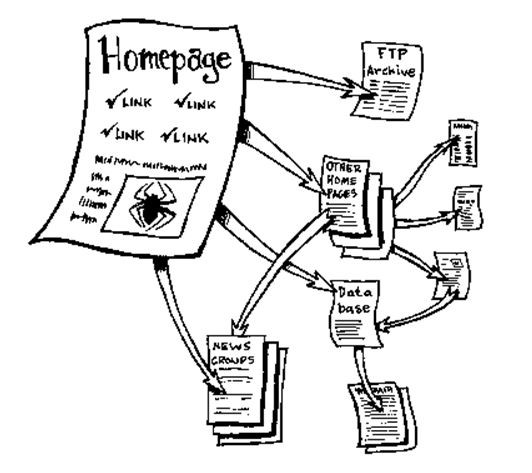 Homepage
✓LINK ✓LINK
✓LINK ✓LINK
FTP
Archive
OTHER
HOME
PAGES
Data
base
NEWS
GROUPS